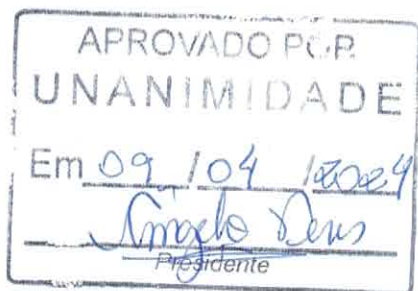 APROVADO POR
UNANIMIDADE
Em 09 / 04 / 2024
Presidente